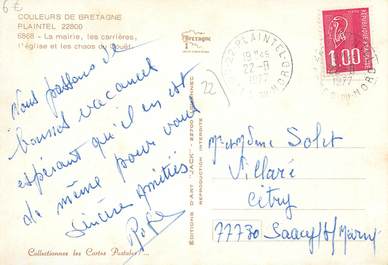 6€
COULEURS DE BRETAGNE
PLAINTEL 22800
6868 - La mairie, les carrières,
l'église et les chaos du Gouët.
Bretagne
22 PLAINTEL
19H45
22-8
1977
1,00
POSTES
RÉPUBLIQUE FRANÇAISE
22
Nous passons de
bonnes vacances
espérant qu'il en est
de même pour vous
Sincères Amitiés
EDITIONS D'ART "JACK"
REPRODUCTION INTERDITE
Mr et Mme Solet
Villaré
Citry
77730 Saacy s/ Marne
Collectionnez les Cartes Postales !...